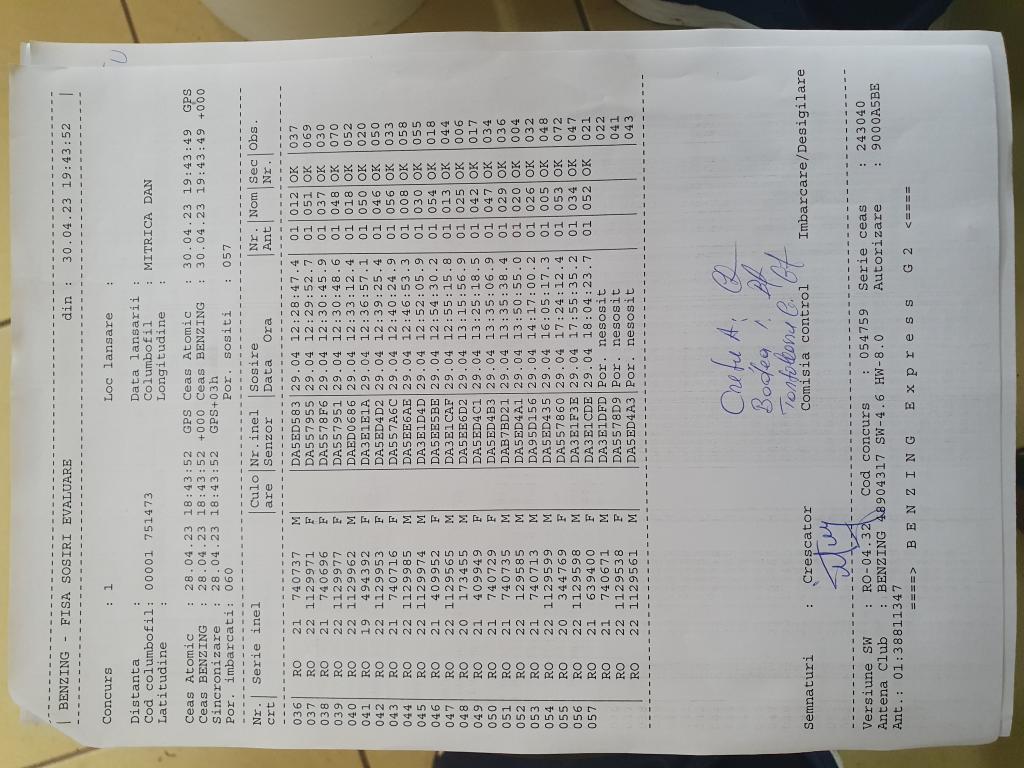 | BENZING - FISA SOSIRI EVALUARE din : 30.04.23 19:43:52 |
Concurs : 1 Loc lansare :
Distanta : Data lansarii :
Cod columbofil: 00001 751473 Columbofil : MITRICA DAN
Latitudine : Longitudine :
Ceas Atomic : 28.04.23 18:43:52 GPS Ceas Atomic : 30.04.23 19:43:49 GPS
Ceas BENZING : 28.04.23 18:43:52 +000 Ceas BENZING : 30.04.23 19:43:49 +000
Sincronizare : 28.04.23 18:43:52 GPS+03h
Por. imbarcati: 060 Por. sositi : 057
Nr.| Serie inel |Culo|Nr.inel |Sosire |Nr.|Nom|Sec|Obs.
crt| |are |Senzor |Data Ora |Ant| |Nr.|
036 RO 21 740737 M |DA5ED583|29.04 12:28:47.4|01 |012|OK |037
037 RO 22 1129971 F |DA557955|29.04 12:29:52.7|01 |051|OK |069
038 RO 21 740696 F |DA5578F6|29.04 12:30:45.9|01 |037|OK |030
039 RO 22 1129977 F |DA557951|29.04 12:30:48.6|01 |048|OK |070
040 RO 22 1129962 M |DAED0686|29.04 12:33:12.4|01 |018|OK |052
041 RO 19 494392 F |DA3E1E1A|29.04 12:36:57.1|01 |050|OK |020
042 RO 22 1129953 F |DA5ED4D2|29.04 12:39:25.4|01 |046|OK |050
043 RO 21 740716 F |DA557A6C|29.04 12:40:24.9|01 |056|OK |033
044 RO 22 1129985 M |DA5EE6AE|29.04 12:46:53.3|01 |008|OK |058
045 RO 22 1129974 M |DA3E1D4D|29.04 12:52:05.9|01 |030|OK |055
046 RO 21 409952 F |DA5EE5BE|29.04 12:54:30.2|01 |054|OK |018
047 RO 22 1129565 M |DA3E1CAF|29.04 12:55:15.8|01 |013|OK |044
048 RO 20 173455 M |DA5EE6D2|29.04 13:11:56.9|01 |025|OK |006
049 RO 21 409949 F |DA5ED4C1|29.04 13:25:18.5|01 |042|OK |017
050 RO 21 740729 F |DA5ED4B3|29.04 13:35:06.9|01 |047|OK |034
051 RO 21 740735 M |DAB7BD21|29.04 13:35:38.4|01 |029|OK |036
052 RO 22 129585 M |DA5ED4A1|29.04 13:50:55.0|01 |020|OK |004
053 RO 21 740713 M |DA95D156|29.04 14:17:00.2|01 |026|OK |032
054 RO 22 1129599 M |DA5ED435|29.04 16:05:17.3|01 |005|OK |048
055 RO 20 344769 F |DA557860|29.04 17:24:12.4|01 |053|OK |072
056 RO 22 1129598 M |DA3E1F3E|29.04 17:55:35.2|01 |034|OK |047
057 RO 21 639400 F |DA3E1CDE|29.04 18:04:23.7|01 |052|OK |021
RO 21 740671 M |DA3E1DFD|Por. nesosit | | | |022
RO 22 1129538 F |DA5578DA|Por. nesosit | | | |041
RO 22 1129561 M |DA5ED4A3|Por. nesosit | | | |043
Cretu A.
Bodea I.
Semnaturi : Crescator Comisia control Imbarcare/Desigilare
Versiune SW : RO-04.32 Cod concurs : 054759 Serie ceas : 243040
Antena Club : BENZING 48904317 SW-4.6 HW-8.0 Autorizare : 9000A5BE
Ant.: 01:38811347
====> B E N Z I N G E x p r e s s G 2 <====